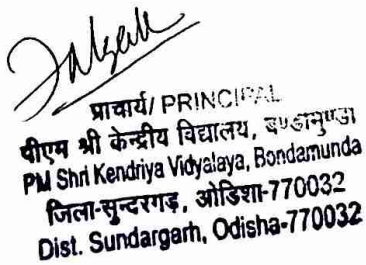 प्राचार्य/ PRINCIPAL
पीएम श्री केन्द्रीय विद्यालय, बण्डामुण्डा
PM Shri Kendriya Vidyalaya, Bondamunda
जिला-सुन्दरगड़, ओडिशा-770032
Dist. Sundargarh, Odisha-770032